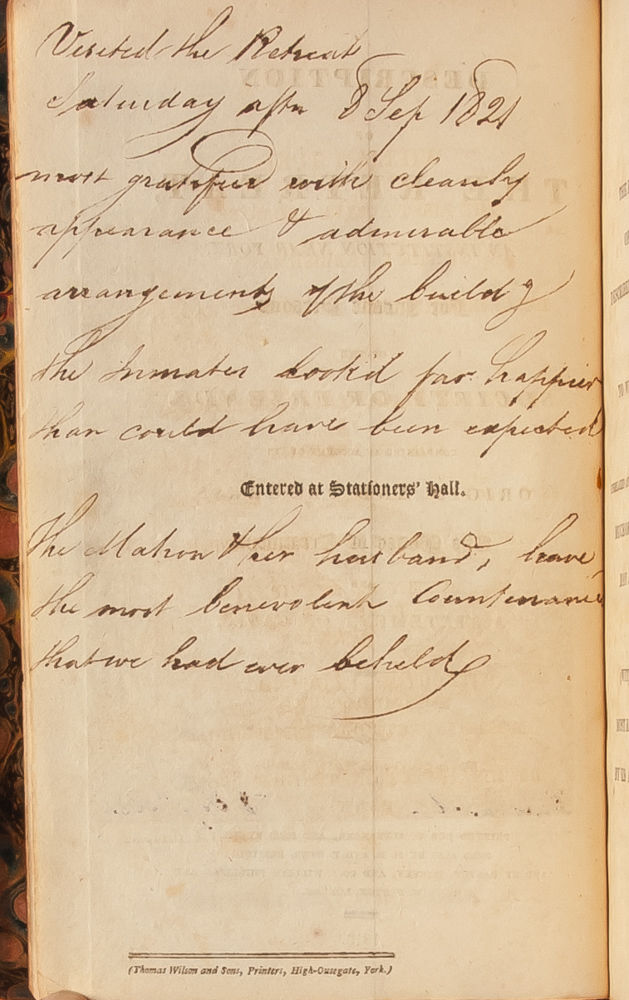 Visited the Retreat
Saturday aftn 8 Sep 1821
most gratified with cleanly
appearance & admirable
arrangements of the buildg
the Inmates look'd far happier
than could have been expected
Entered at Stationers' Hall.
The Matron & her husband, have
the most benevolent Countenances
that we had ever beheld
(Thomas Wilson and Sons, Printers, High-Ousegate, York.)